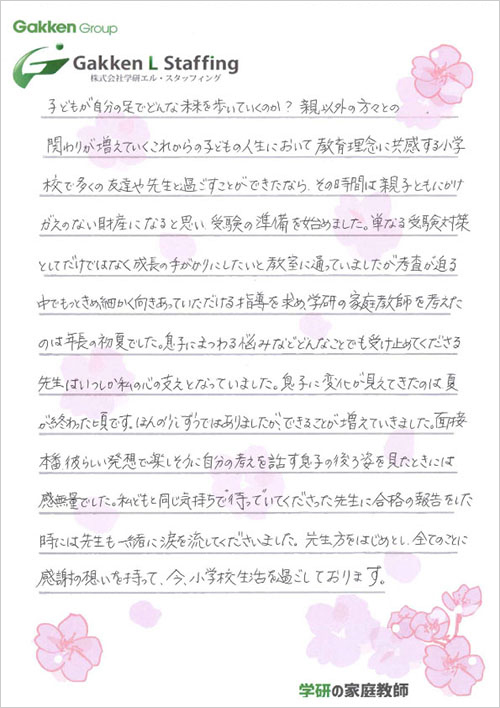 Gakken Group
Gakken L Staffing
株式会社学研エル・スタッフィング
子どもが自分の足でどんな未来を歩いていくのか？ 親以外の方々との
関わりが増えていくこれからの子どもの人生において 教育理念に共感する小学
校で多くの友達や先生と過ごすことができたなら、その時間は親子ともにかけ
がえのない財産になると思い 受験の準備を始めました。単なる受験対策
としてだけではなく成長の手がかりにしたいと教室に通っていましたが考査が迫る
中でもっときめ細かく向きあっていただける指導を求め、学研の家庭教師を考えた
のは年長の初夏でした。息子にまつわる悩みなどどんなことでも受け止めてくださる
先生はいつしか私の心の支えとなっていました。息子に変化が見えてきたのは夏
が終わった頃です。ほんの少しずつではありましたが、できることが増えていきました。面接
本番 彼らしい発想で楽しそうに自分の考えを話す息子の後ろ姿を見たときには
感無量でした。私どもと同じ気持ちで"待って"いてくださった先生に合格の報告をした
時には先生も一緒に涙を流してくださいました。先生方をはじめとし、全てのことに
感謝の想いを持って、今、小学校生活を過ごしております。
学研の家庭教師